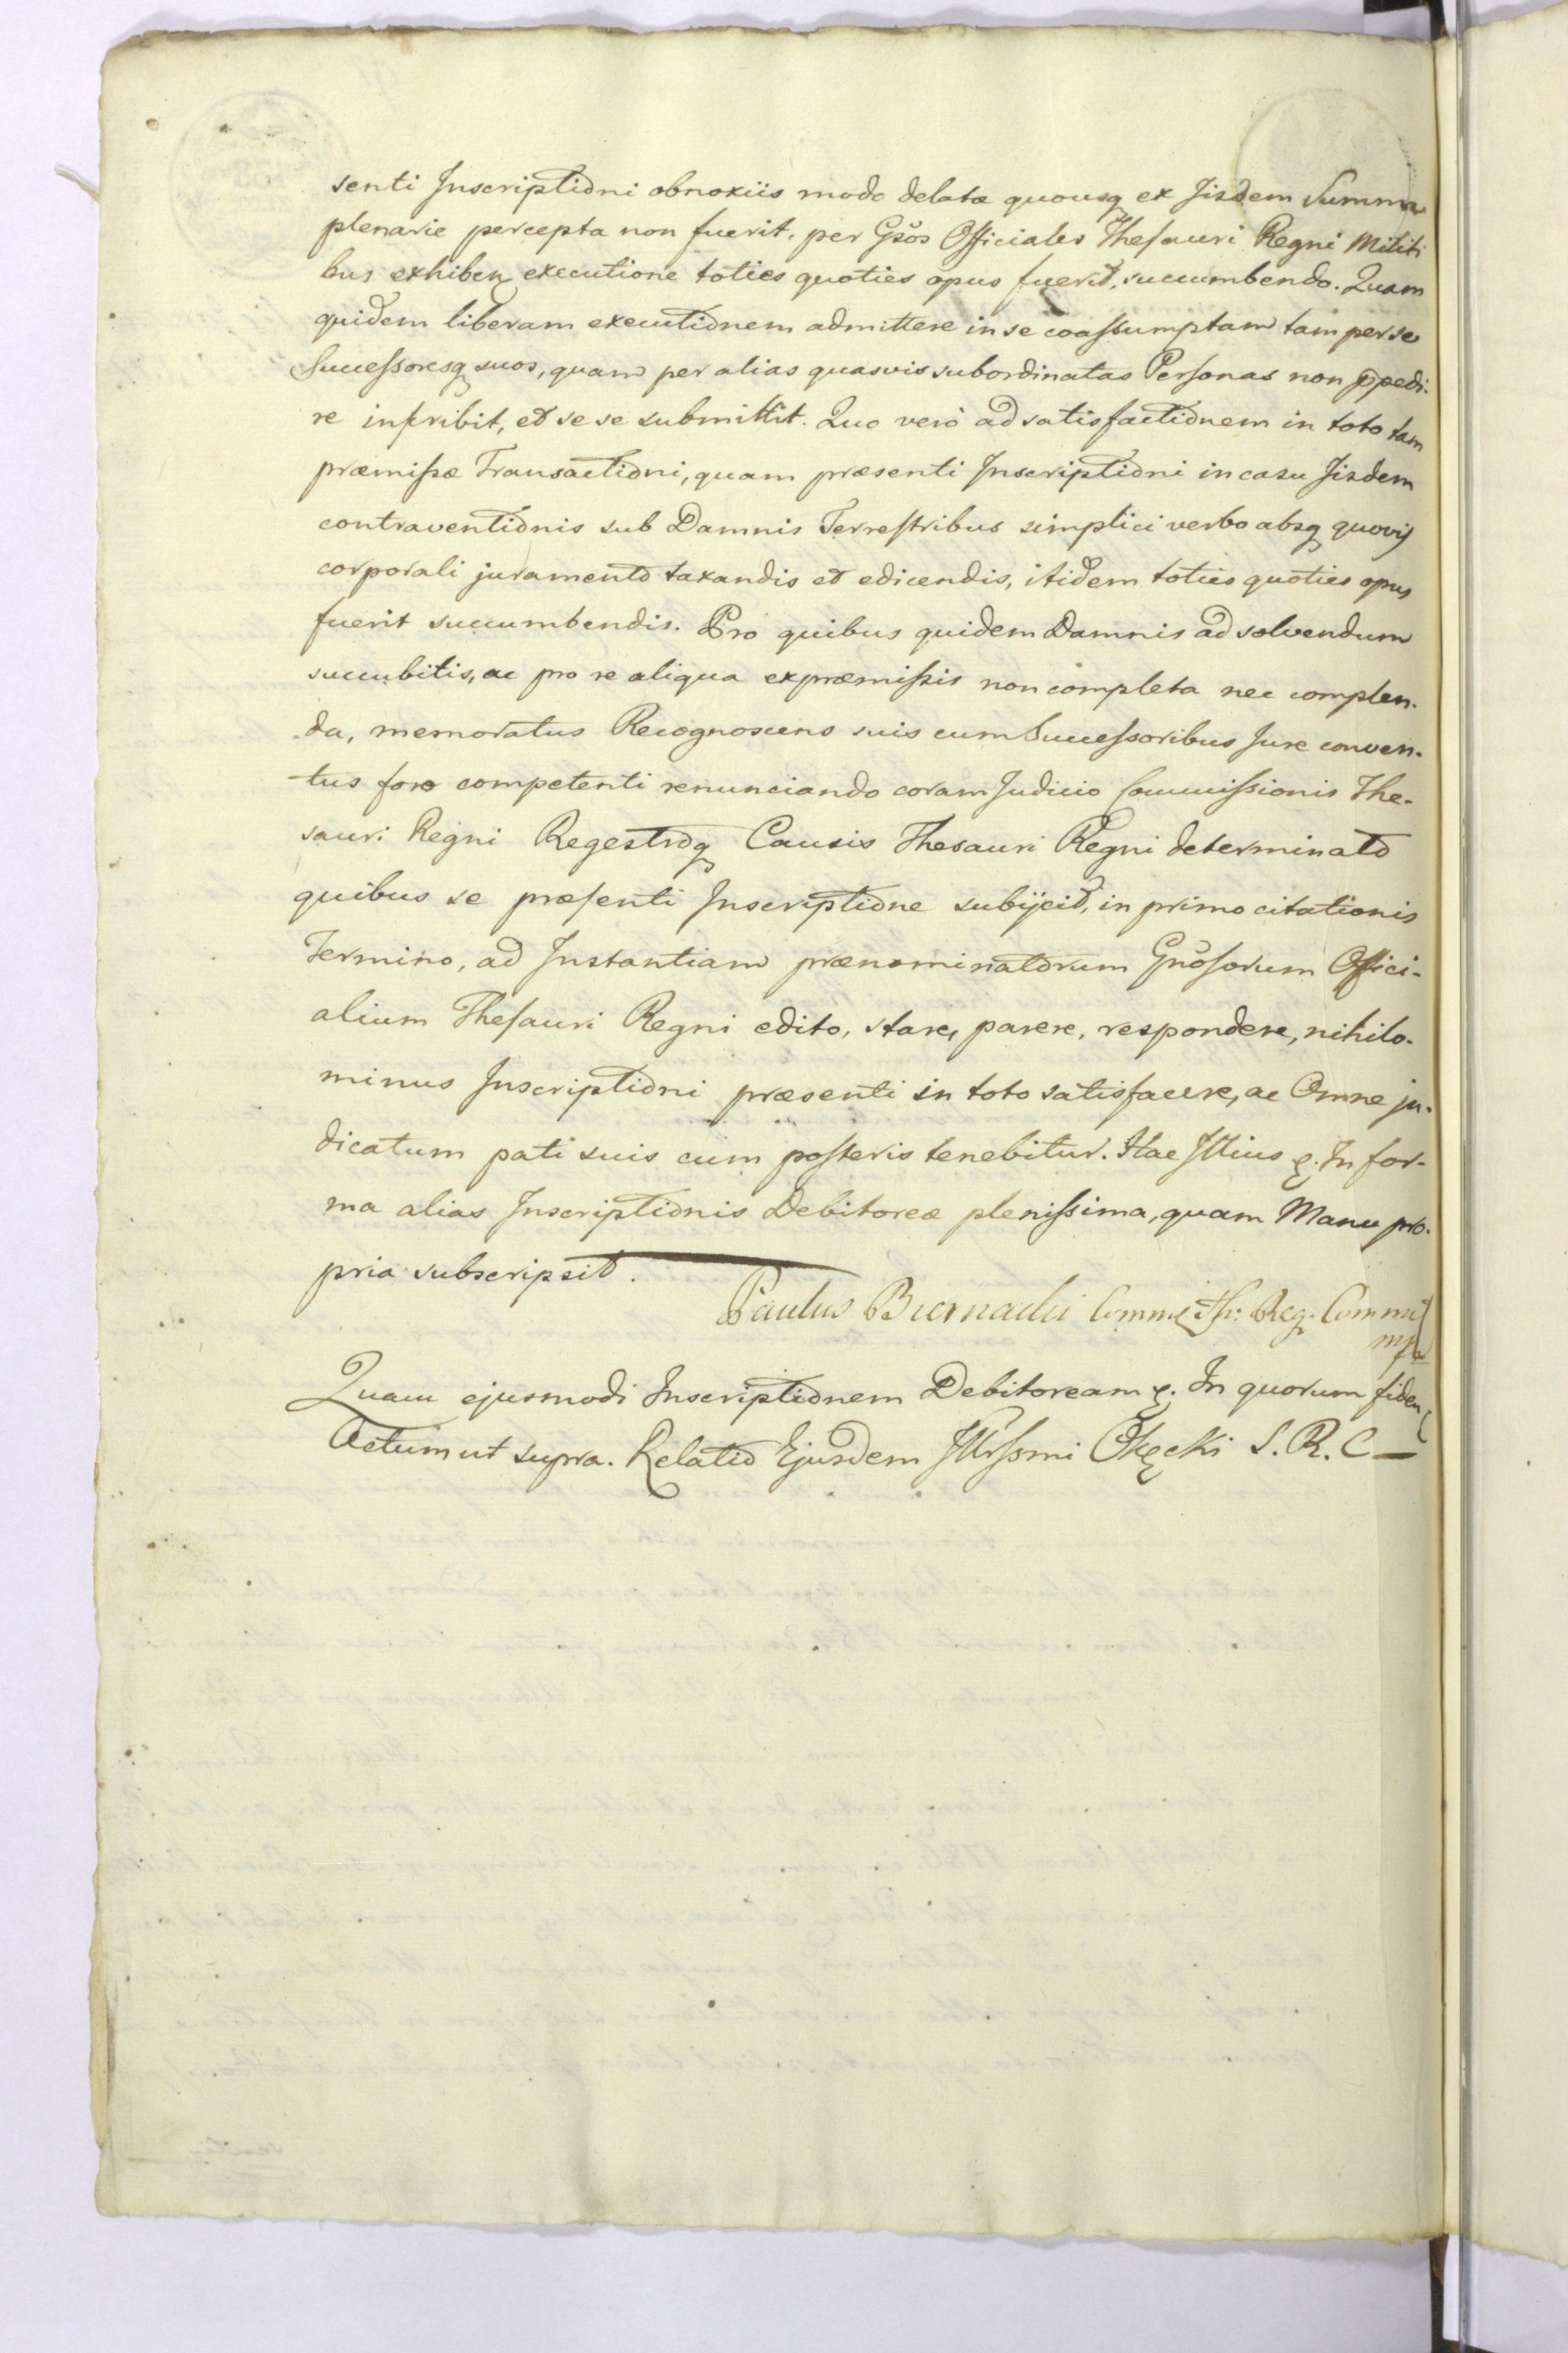 senti Inscriptioni obnoxiis modo delatæ quousq ex Iisdem Summa
plenarie percepta non fuerit, per Gsõs Officiales Thesauri Regni Militi
bus exhiben executione toties quoties opus fuerit, succumbendo. Quam
quidem liberam executionem admittere in se coassumptam tam per se
Successoresq suos, quam per alias quasvis subordinatas Personas non p̄pedi-
re inscribit, et se se submittit. Quo verò ad satisfactionem in toto tam
præmissæ Transactioni, quam præsenti Inscriptioni in casu Iisdem
contraventionis sub Damnis Terrestribus simplici verbo absq quovis
corporali juramento taxandis et edicendis, itidem toties quoties opus
fuerit succumbendis. Pro quibus quidem Damnis ad solvendum
succubitis, ac pro re aliqua expræmissis non completa nec complen-
da, memoratus Recognoscens suis cum Successoribus Jure conven-
tus foro competenti renunciando coram Judicio Commissionis The-
sauri Regni Regestroq Causis Thesauri Regni determinato
quibus se præsenti Inscriptione subijcit, in primo citationis
Termino, ad Instantiam prænominatorum Gñosorum Offici-
alium Thesauri Regni edito, stare, parere, respondere, nihilo-
minus Inscriptioni præsenti in toto satisfacere, ac Omne ju-
dicatum pati suis cum posteris tenebitur. Hac Illius &. In for-
ma alias Inscriptionis Debitoreæ plenissima, quam Manu pro-
pria subscripsit.
Paulus Biernacki Reg. Comm
mp
Quam ejusmodi Inscriptionem Debitoream &. In quorum fidem
Actum ut supra. Relatio Ejusdem Illrssmi Okęcki S. R. C